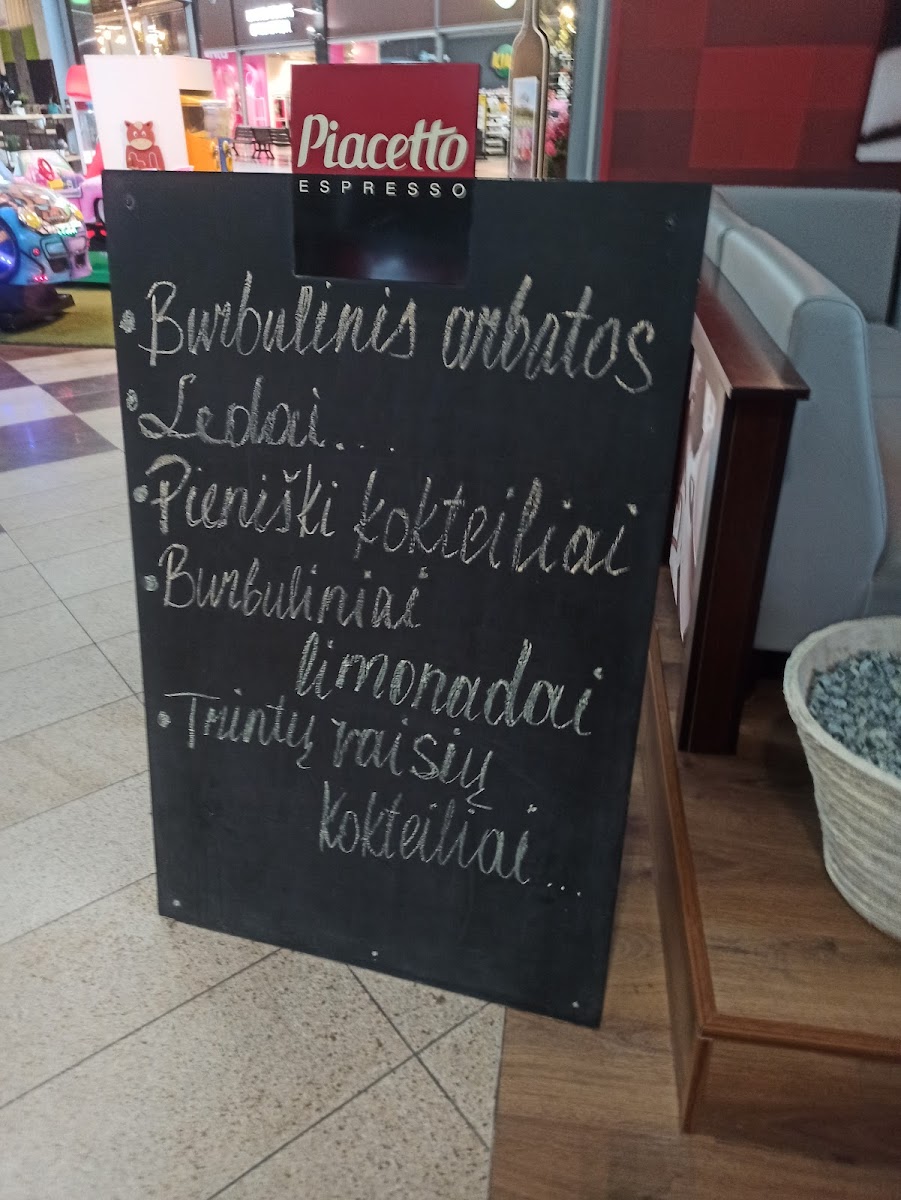 Piacetto
ESPRESSO
• Burbulinis arbatos
• Ledai...
• Pieniški kokteiliai
• Burbuliniai
limonadai
• Trintų vaisių
kokteiliai...